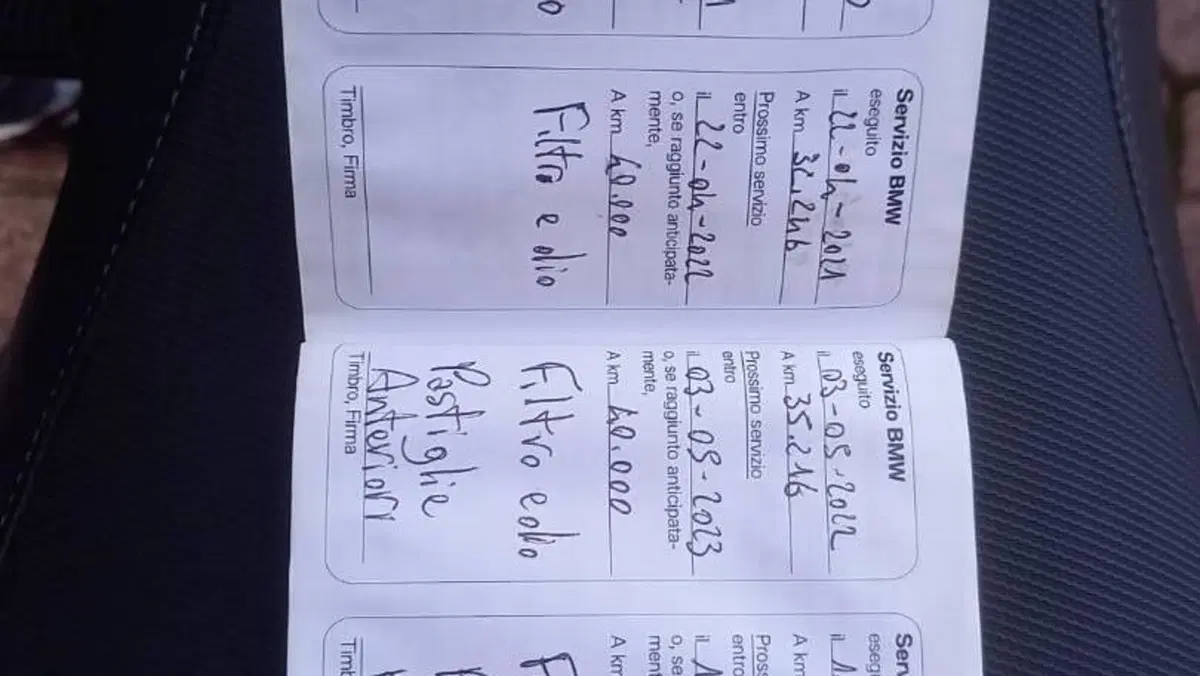 Servizio BMW
eseguito
il 22-04-2021
A km 32.246
Prossimo servizio
entro
il 22-04-2022
o, se raggiunto anticipata-
mente,
A km 40.000
Filtro e olio
Timbro, Firma
Servizio BMW
eseguito
il 03-05-2022
A km 35.216
Prossimo servizio
entro
il 03-05-2023
o, se raggiunto anticipata-
mente,
A km 40.000
Filtro e olio
Pastiglie
Anteriori
Timbro, Firma
Serv
eseg
il 1
A km
Pross
entro
il 1
o, se
ment
A km
F
Timb